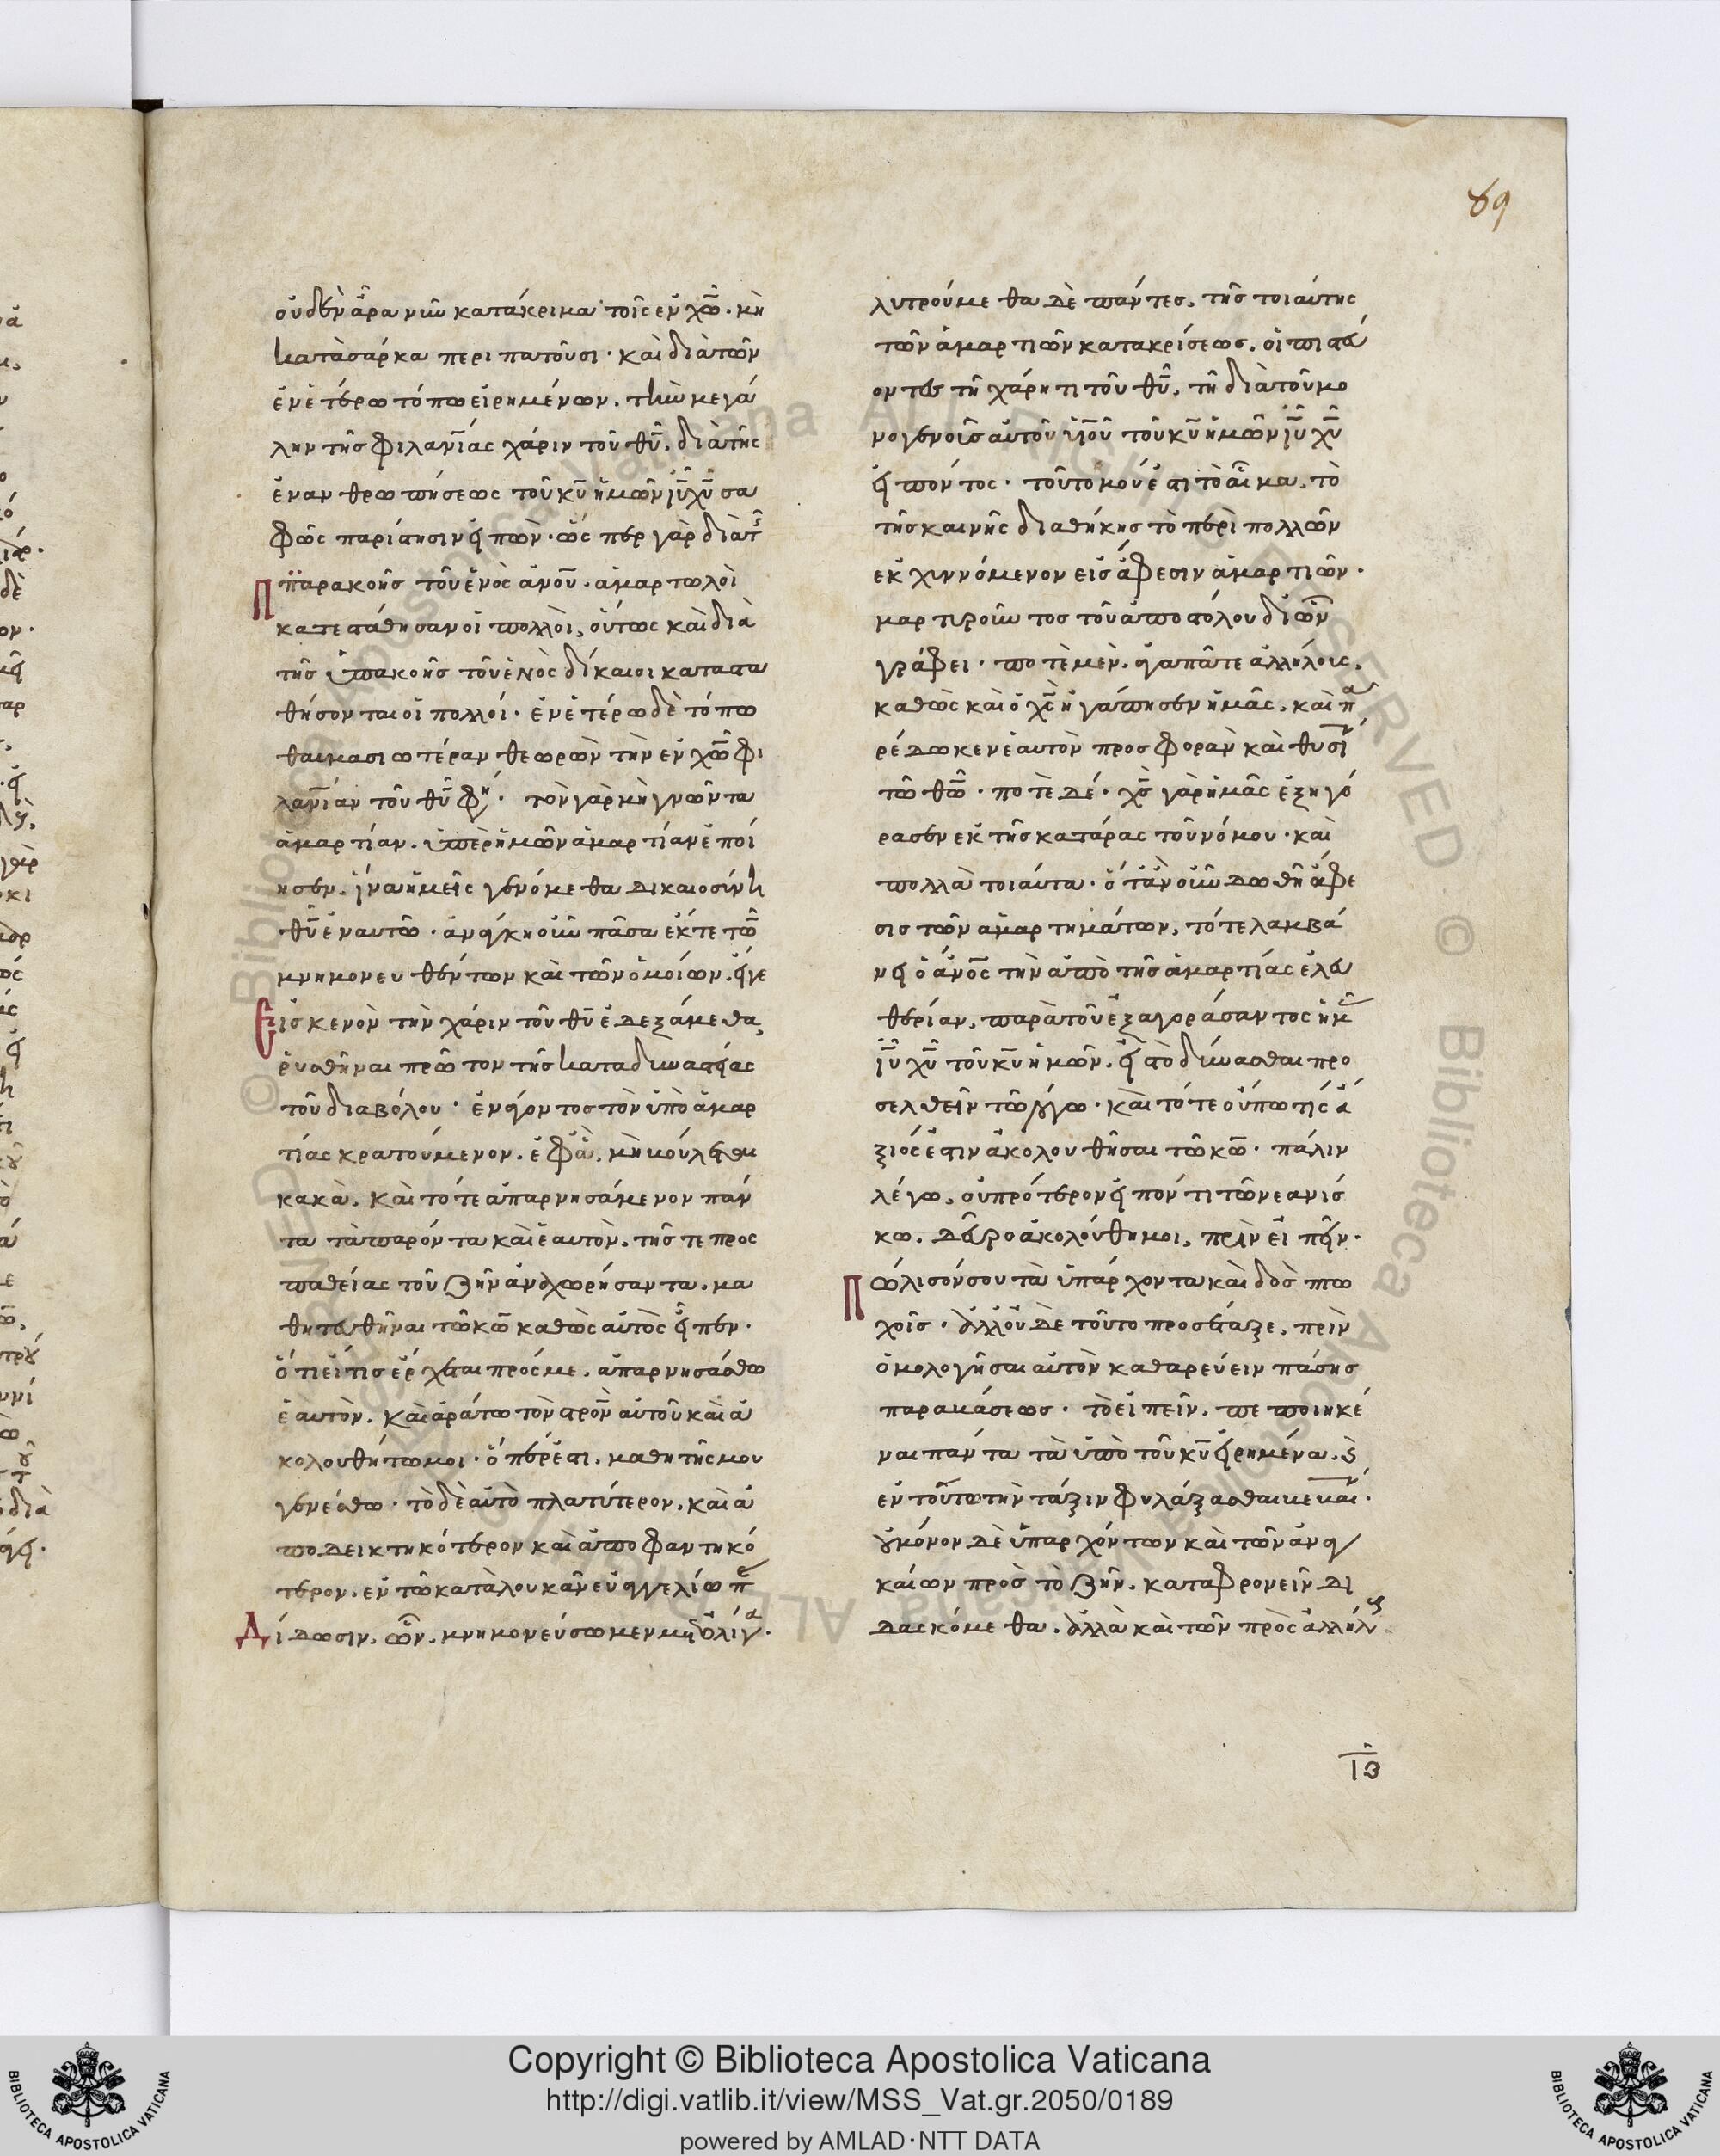 89
οὐδὲν ἄρα νῦν κατάκριμα τοῖς ἐν χῶ. μὴ
κατὰ σάρκα περιπατοῦσι· καὶ διὰ τῶν
ἐν ἑτέρω τόπω εἰρημένων. τὴν μεγά
λην τῆς φιλανίας χάριν τοῦ θῦ. διὰ τῆς
ἐνανθρωπήσεως τοῦ κῦ ἡμῶν ἰῦ χῦ σα
φῶς παρίστησιν εἰπὼν· ὥσπερ γὰρ διὰ τῆς
παρακοῆς τοῦ ἑνὸς ἀνοῦ. ἁμαρτωλοὶ
κατεστάθησαν οἱ πολλοὶ, οὕτως καὶ διὰ
τῆς ὑπακοῆς τοῦ ἑνὸς δίκαιοι καταστα
θήσονται οἱ πολλοί· ἐν ἑτέρω δὲ τόπω
θαυμασιωτέραν θεωρῶν τὴν ἐν χῶ φι
λανίαν τοῦ θῦ φη· τὸν γὰρ μὴ γνῶντα
ἁμαρτίαν. ὑπὲρ ἡμῶν ἁμαρτίαν ἐποί
ησεν. ἵνα ἡμεῖς γενόμεθα δικαιοσύνη
θῦ ἐν αυτῶ· ἀνάγκη οὖν πᾶσα ἐκ τε τῶ
μνημονευθέντων καὶ τῶν ὁμοίων. εἴγε
Εἰς κενὸν τὴν χάριν τοῦ θῦ ἐδεξάμεθα,
ῥυσθῆναι πρῶτον τῆς καταδυναστείας
τοῦ διαβόλου· ἐνάγοντος τὸν ὑπὸ ἁμαρ
τίας κρατούμενον. ἐφ' ἃ. μὴ βούλεται
κακὰ. καὶ τότε ἀπαρνησάμενον πάν
τα τὰ παρόντα καὶ ἑαυτὸν. τῆς τε προς
παθείας τοῦ ζῆν ἀναχωρήσαντα. μα
θητευθῆναι τῶ κῶ καθὼς αὐτὸς εἶπεν·
ὅτι εἴ τις ἔρχεται πρός με. ἀπαρνησάσθω
ἑαυτὸν. καὶ ἀράτω τὸν σρον αὐτοῦ καὶ ἀ
κολουθήτω μοι· ὅπέρ ἐστι. μαθητής μου
γενέσθω· τὸ δὲ αὐτὸ πλατύτερον. καὶ ἀ
ποδεικτηκότερον καὶ ἀποφαντηκό
τερον. ἐν τῶ κατὰ λουκᾶν εὐαγγελίω π
Δίδωσιν. ὧν. μνημονεύσωμεν μὴ ὀλίγα·
λυτρούμεθα δὲ πάντες. τῆς τοιαύτης
τῶν ἁμαρτιῶν κατακρίσεως. οἱ πιστεύ
οντες τῆ χάρητι τοῦ θῦ. τῆ διὰ τοῦ μο
νογενοῦς αὐτοῦ υἱοῦ τοῦ κῦ ἡμῶν ἰῦ χῦ
εἰπόντος· τοῦτο μού ἐστι τὸ αἷμα. τὸ
τῆς καινῆς διαθήκης τὸ περὶ πολλῶν
ἐκχυννόμενον εἰς ἄφεσιν ἁμαρτιῶν·
μαρτυροῦντος τοῦ ἀποστόλου δι' ὧν
γράφει· ποτὲ μὲν. ἀγαπᾶτε ἀλλήλους.
καθὼς καὶ ὁ χς ἠγάπησεν ἡμᾶς. καὶ πα
ρέδωκεν ἑαυτὸν προσφορὰν καὶ θυσίν
τῶ θῶ· ποτὲ δέ· χς γὰρ ἡμᾶς ἐξηγό
ρασεν ἐκ τῆς κατάρας τοῦ νόμου· καὶ
πολλὰ τοιαύτα· ὅταν οὖν δωθῆ ἄφε
σις τῶν αμαρτημάτων, τότε λαμβά
νει ὁ ἄνος τὴν ἀπὸ τῆς ἁμαρτίας ἐλευ
θερίαν. παρὰ τοῦ ἐξαγοράσαντος ἡμᾶς
ἰῦ χῦ τοῦ κῦ ἡμῶν. εἰς τὸ δύνασθαι προ
σελθεῖν τῶ λόγω· καὶ τότε οὔπω τίς ἄ
ξιός ἐστιν ἀκολουθῆσαι τῶ κῶ· πάλιν
λέγω, οὐ πρότερον εἰπόντι τῶ νεανίσ
κω. δεῦρο ἀκολούθη μοι, πρὶν εἰπεῖν·
Πώλισόν σου τὰ ὑπάρχοντα καὶ δὸς πτω
χοῖς· ἀλλ' οὐδὲ τοῦτο προσέταξε, πρὶν
ὁμολογῆσαι αὐτὸν καθαρεύειν πάσης
παραβάσεως· τὸ εἰπεῖν. πεποιηκέ
ναι πάντα τὰ ὑπὸ τοῦ κῦ εἰρημένα.
ἐν τούτω τὴν τάξιν φυλάξασθαι
οὐ μόνον δὲ ὑπαρχόντων καὶ τῶν ἀναγ
καίων πρὸς τὸ ζῆν. καταφρονεῖν δι
δασκόμεθα. ἀλλὰ καὶ τῶν πρὸς ἀλλήλους
ιβ
Copyright © Biblioteca Apostolica Vaticana
http://digi.vatlib.it/view/MSS_Vat.gr.2050/0189
powered by AMLAD·NTT DATA
BIBLIOTECA APOSTOLICA VATICANA
BIBLIOTECA APOSTOLICA VATICANA